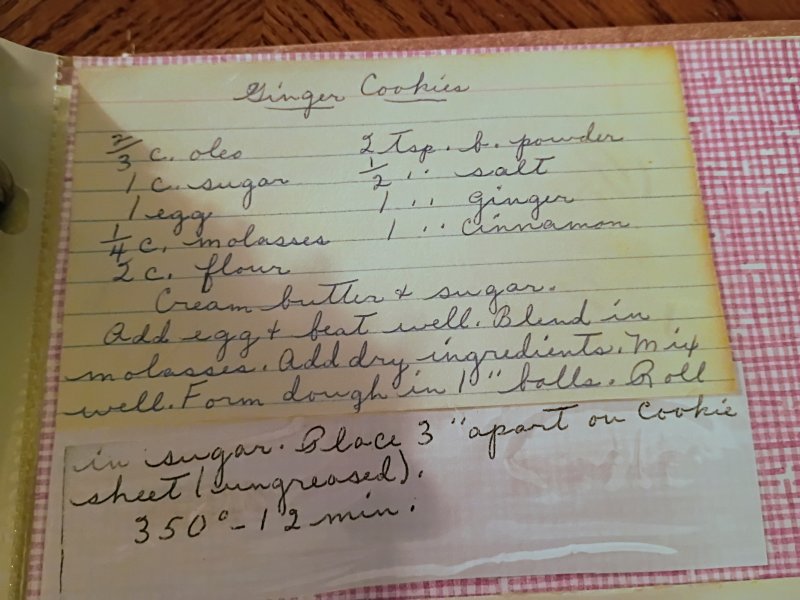 Ginger Cookies
2/3 c. oleo
1 c. sugar
1 egg
1/4 c. molasses
2 c. flour
2 Tsp. b. powder
1/2 " salt
1 " ginger
1 " cinnamon
Cream butter & sugar.
Add egg & beat well. Blend in
molasses. Add dry ingredients. Mix
well. Form dough in 1" balls. Roll
in sugar. Place 3" apart on Cookie
sheet (ungreased).
350° - 12 min.